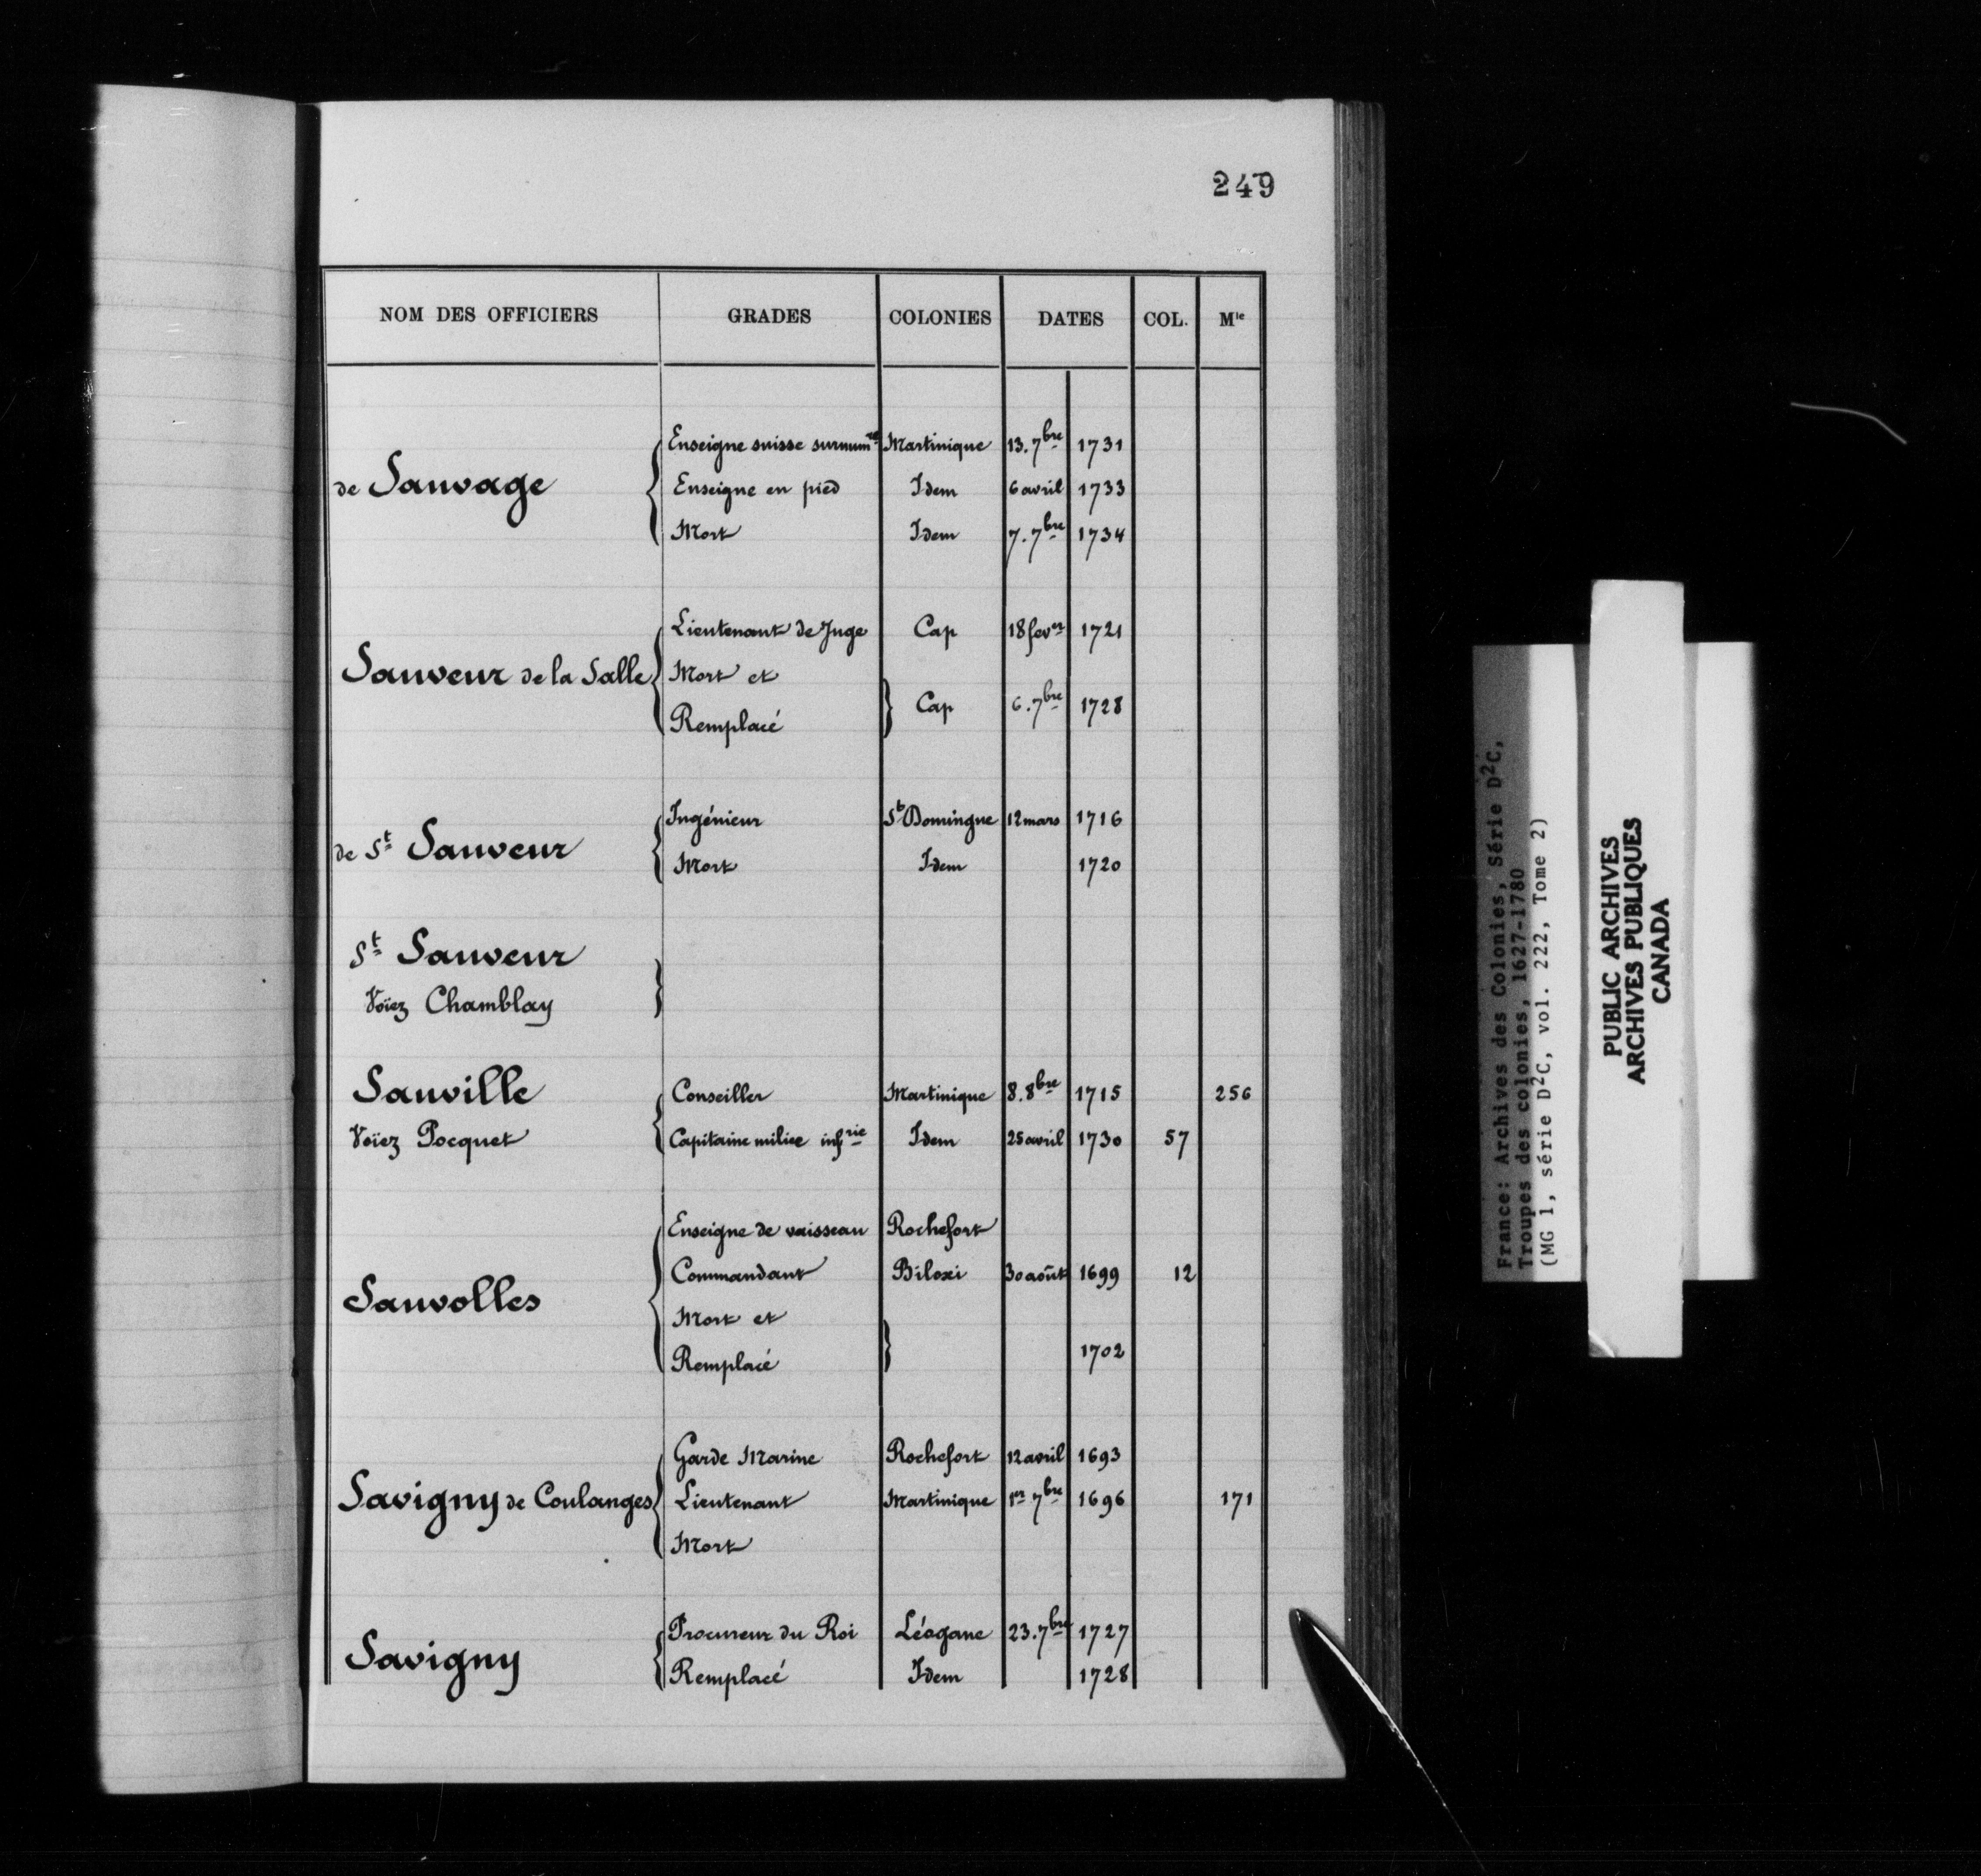 249
NOM DES OFFICIERS GRADES COLONIES DATES COL. Mle
Enseigne suisse surnumre Martinique 13.7bre 1731
de Sauvage Enseigne en pied Idem 6 avril 1733
Mort Idem 7.7bre 1734
Lieutenant de Juge Cap 18 fevrr 1721
Sauveur de la Salle Mort et
Remplacé Cap 6.7bre 1728
Ingénieur St Domingue 12 mars 1716
de St Sauveur Mort Idem 1720
St Sauveur
Voïez Chamblay
Sauville Conseiller Martinique 8.8bre 1715 256
Voïez Pocquet Capitaine milice infrie Idem 25 avril 1730 57
Enseigne de vaisseau Rochefort
Commandant Biloxi 30 août 1699 12
Sauvolles Mort et
Remplacé 1702
Garde Marine Rochefort 12 avril 1693
Savigny de Coulanges Lieutenant Martinique 1er 7bre 1696 171
Mort
Procureur du Roi Léogane 23.7bre 1727
Savigny Remplacé Idem 1728
France: Archives des Colonies, Série D2C,
Troupes des colonies, 1627-1780
(MG 1, série D2C, vol. 222, Tome 2)
PUBLIC ARCHIVES
ARCHIVES PUBLIQUES
CANADA